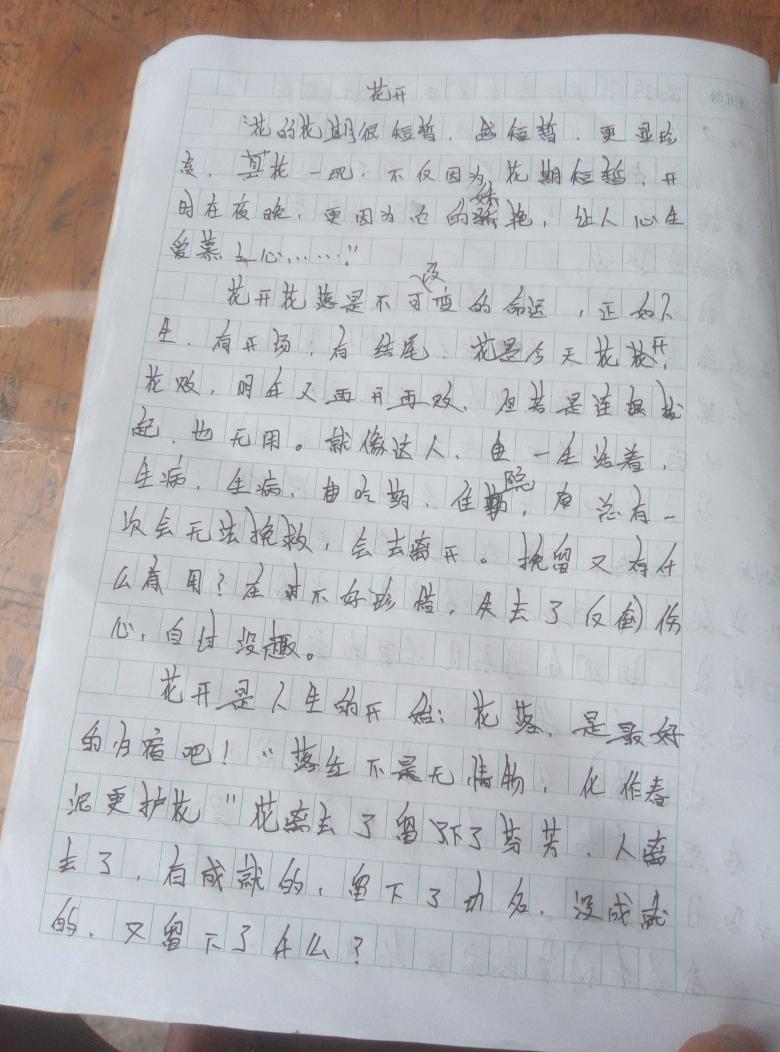 花开
"花的花期很短暂,越短暂,更显珍
贵,昙花一现,不仅因为花期短暂,开
时在夜晚,更因为它的娇艳,让人心生
爱慕之心……"
花开花落是不可改变的命运,正如人
生,有开场,有结尾,花是今天花开,
花败,明年又再开再败,但若是连根拔
起,也无用。就像这人,一生活着,
生病,生病,吃药,住院,总有一
次会无法挽救,会去离开。挽留又有什
么有用?在时不好珍惜,失去了反倒伤
心,自讨没趣。
花开是人生的开始;花落,是最好
的归宿吧!"落红不是无情物,化作春
泥更护花"花离去了留下了芬芳,人离
去了,有成就的,留下了功名,没成就
的,又留下了什么?